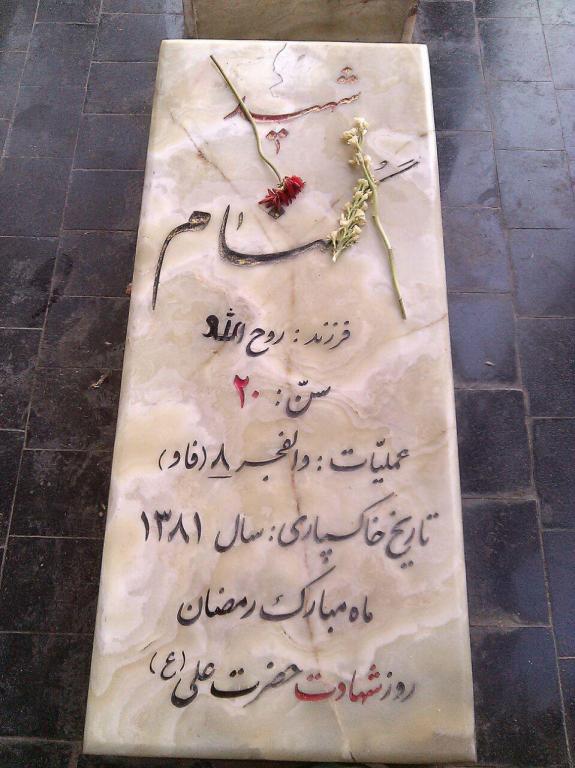 شهید
گمنام
فرزند : روح الله
سنّ : ۲۰
عملیّات : والفجر ۸ (فاو)
تاریخ خاکسپاری : سال ۱۳۸۱
ماه مبارک رمضان
روز شهادت حضرت علی (ع)